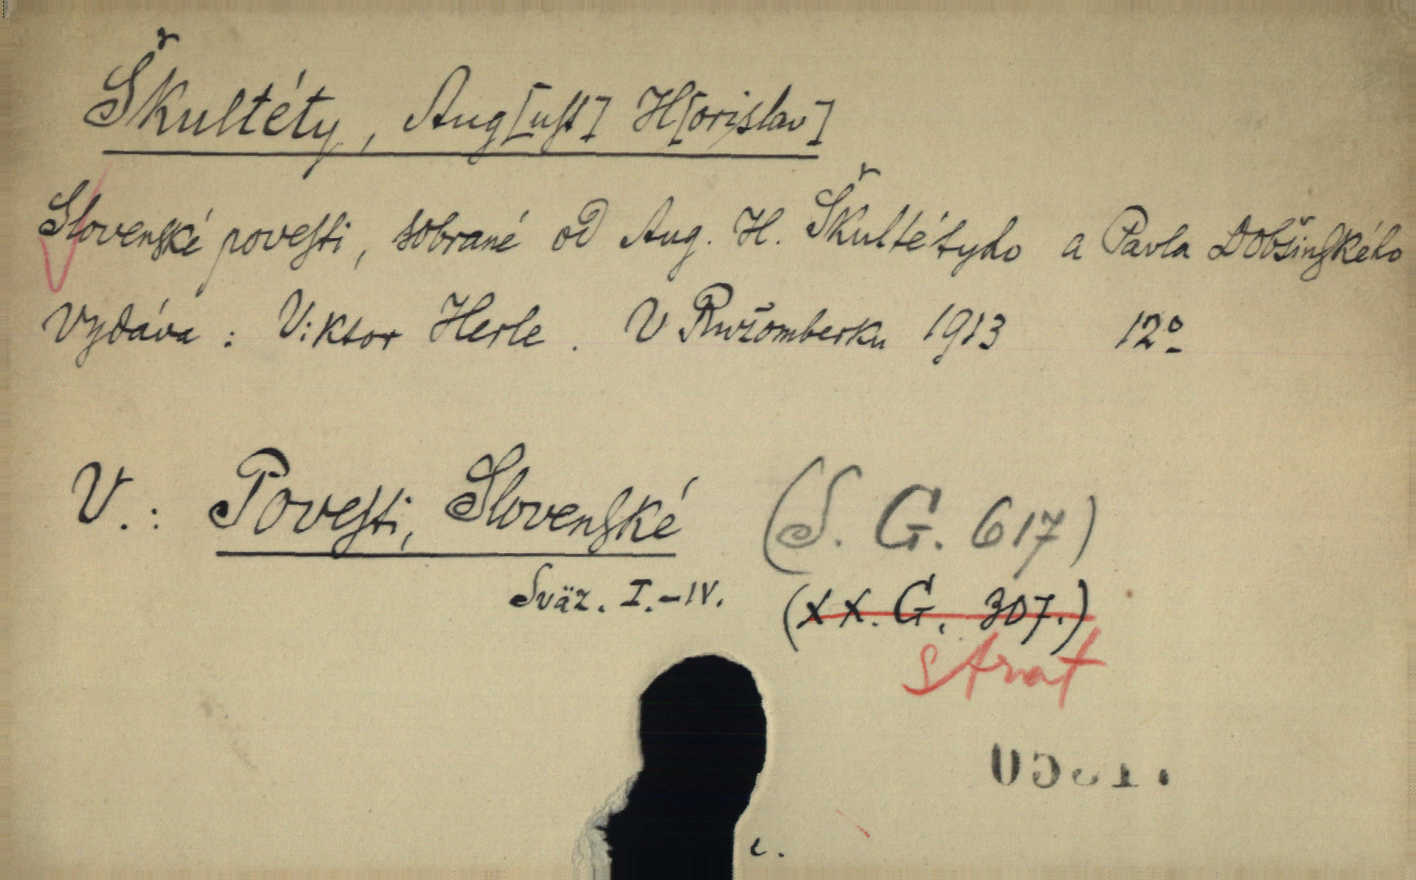 Škultéty, Aug[ust] H[orislav]
Slovenské povesti, sobrané od Aug. H. Škultétyho a Pavla Dobšinského
Vydáva : Viktor Herle . V Ružomberku 1913 12º
V. : Povesti, Slovenské (S. G. 617)
Sväz. I.–IV. (XX. G. 307.)
strat
c.